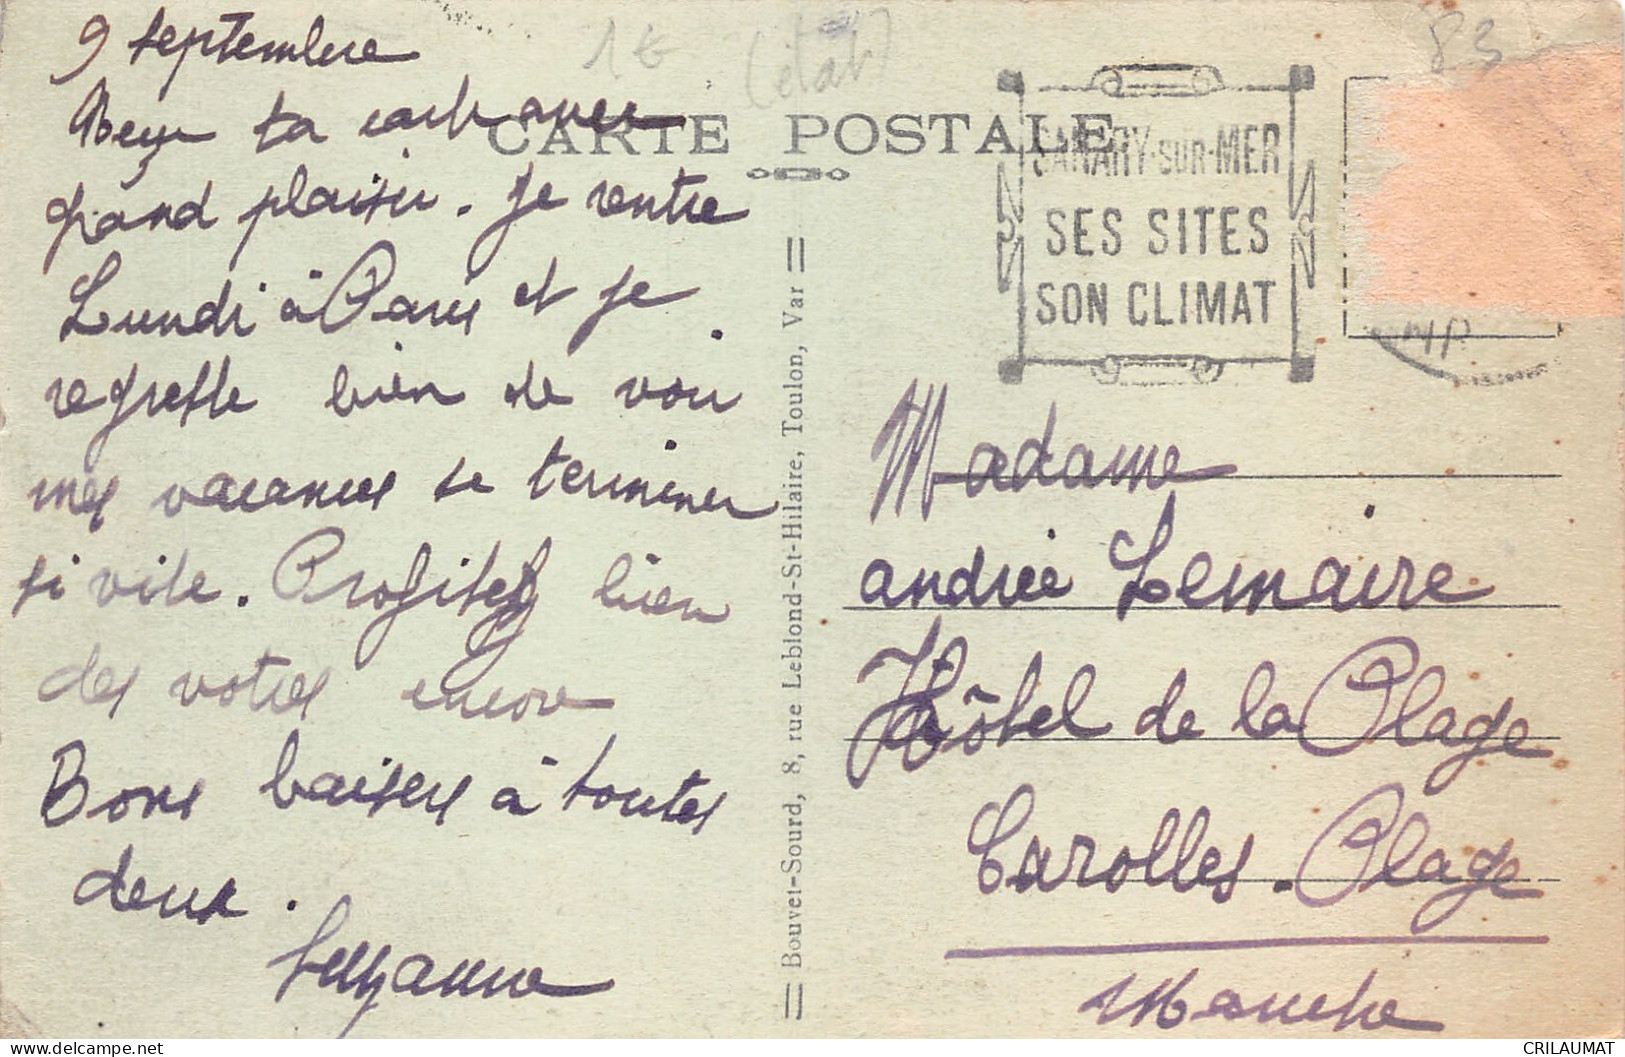 9 septembre
Reçu ta carte avec
grand plaisir. Je rentre
Lundi à Paris et je
regrette bien de voir
mes vacances se terminer
si vite. Profitez bien
des votres encore
Bons baisers à toutes
deux.
Suzanne
1€ (état)
83
CARTE POSTALE
SANARY-SUR-MER
SES SITES
SON CLIMAT
Bouvet-Sourd, 8, rue Leblond-St-Hilaire, Toulon, Var
Madame
andrée Lemaire
Hôtel de la Plage
Carolles-Plage
Manche
delcampe.net
CRILAUMAT